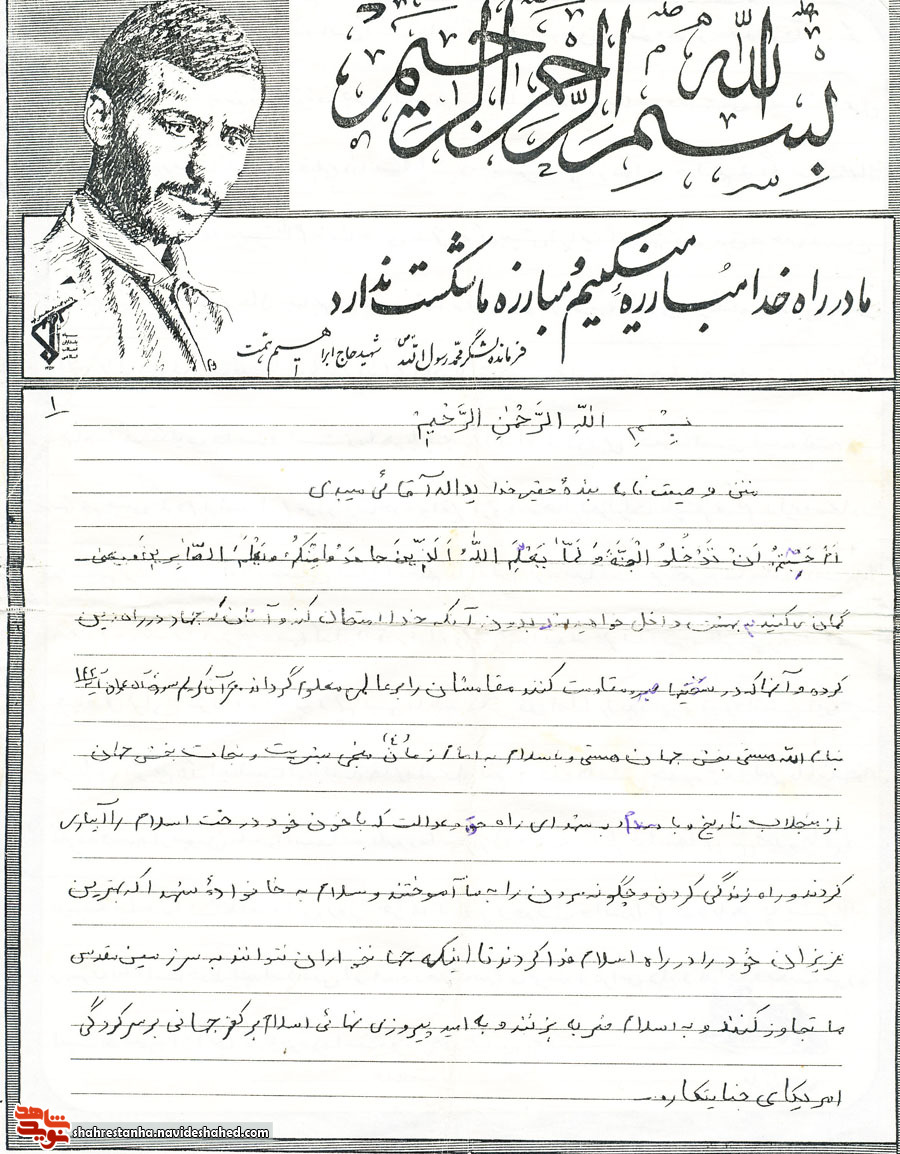 بسم الله الرحمن الرحیم
ما در راه خدا مبارزه میکنیم و مبارزه ما شکست ندارد
فرمانده لشگر محمد رسول الله شهید حاج ابراهیم همت
۱
بِسْمِ اللهِ الرَّحْمٰنِ الرَّحْیمْ
متن وصیت نامه بندهٔ حقیر خدا یداله آقائی میبدی
اَمْ حَسِبْتُمْ اَنْ تَدْخُلُو الْجَنَّةَ وَ لَمّٰا یَعْلَمِ اللّٰهُ الَّذینَ جاهَدُوا مِنْکُمْ وَ یَعْلَمَ الصّابِرینَ یعنی
گمان می کنید به بهشت داخل خواهید شد بدون آنکه خدا امتحان کند و آنان که جهاد در راه دین
کرده و آنها که در سختیها صبر و مقاومت کنند مقامشان را بر عالمی معلوم گرداند. قرآن کریم سوره آل عمران آیه ۱۴۲
بنام الله هستی بخش جهان هستی و با سلام به امام زمان (ع) منجی بشریت و نجات بخش جهان
از منجلاب تاریخ و با سلام به شهدای راه حق و عدالت که با خون خود درخت اسلام را آبیاری
کردند و راه زندگی کردن و چگونه مردن را به ما آموختند و سلام به خانوادهٔ شهدا که بهترین
عزیزان خود را در راه اسلام فدا کردند تا اینکه جهانخواران نتوانند به سرزمین مقدس
ما تجاوز کنند و به اسلام ضربه بزنند و به امید پیروزی نهائی اسلام بر کفر جهانی به سرکردگی
امریکای جنایتکار و
نوید شاهد
shahrestanha.navideshahed.com